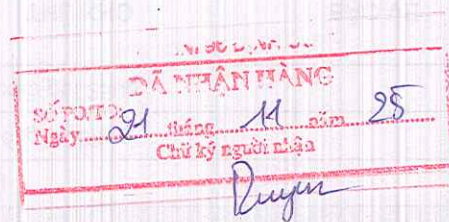 ĐÃ NHẬN HÀNG
SỐ PO/TO:
Ngày 21 tháng 11 năm 25
Chữ ký người nhận
Duyên